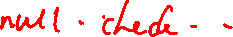 null. check - -